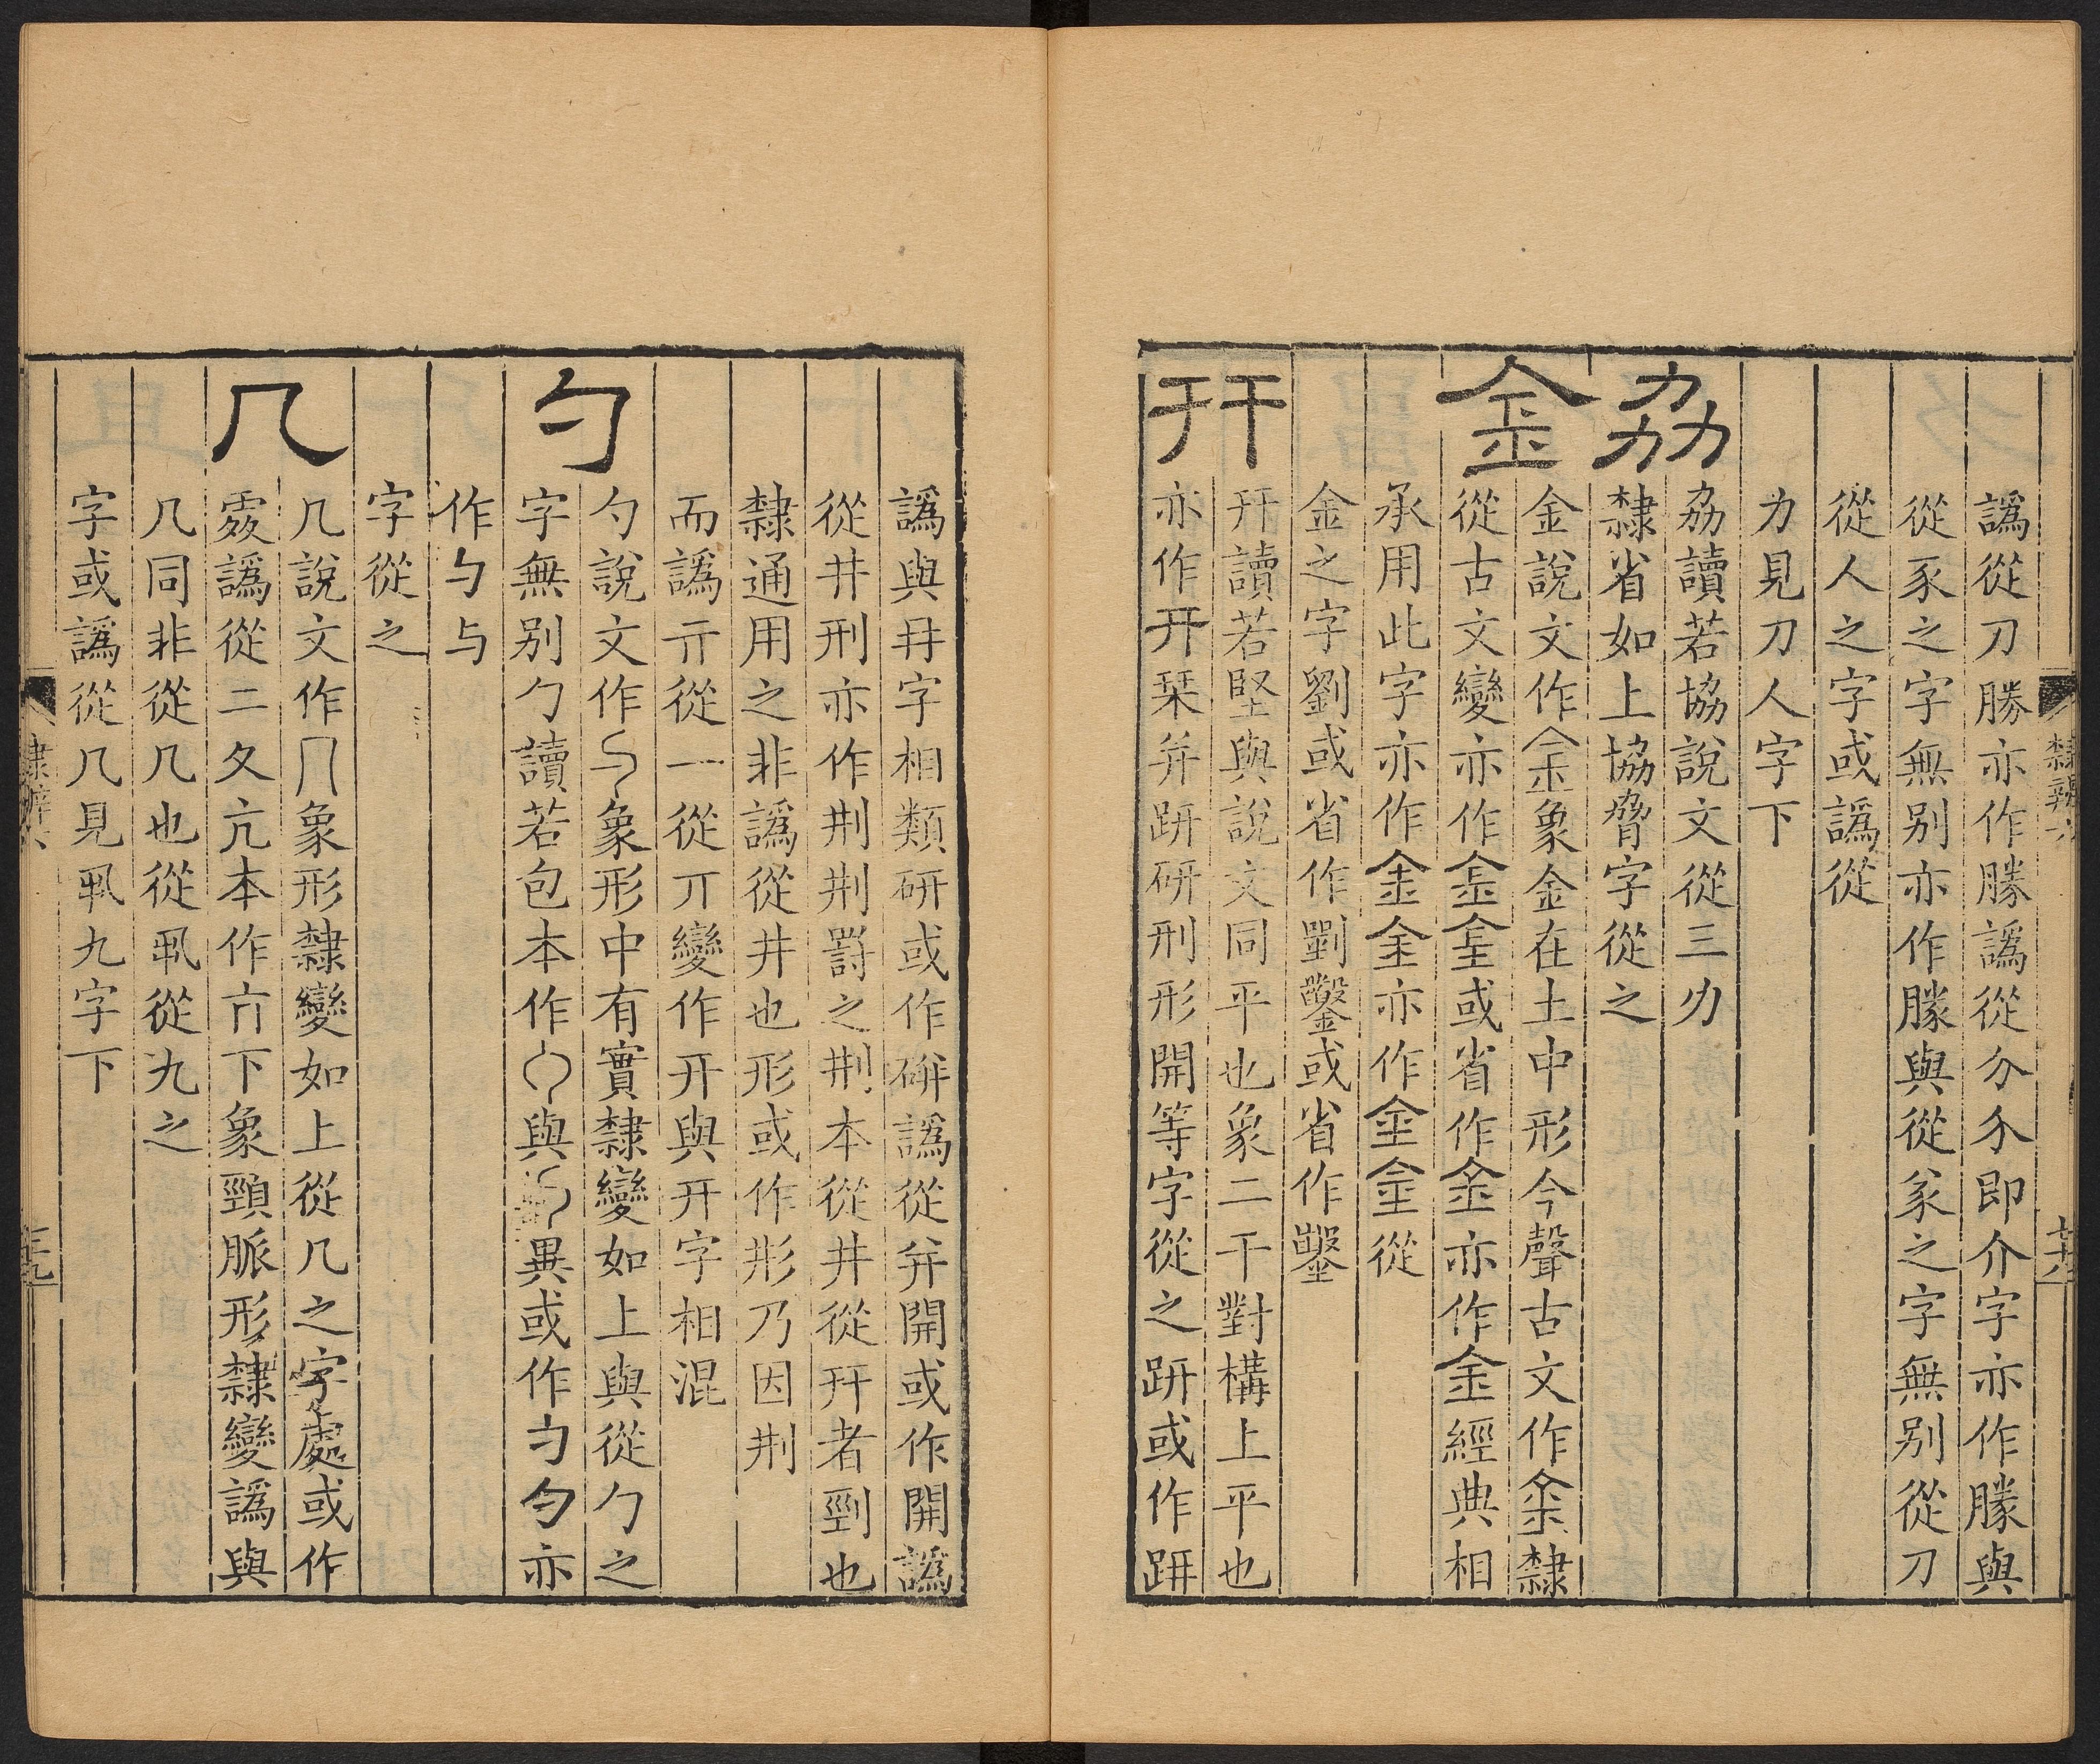 譌從刀勝亦作勝譌從分分即介字亦作勝與
從豕之字無别亦作勝與從㒸之字無别從刀
從人之字或譌從
力見刀人字下
劦
劦讀若協說文從三力
隸省如上協脅字從之
金
金說文作金象金在土中形今聲古文作金隸
從古文變亦作金金或省作金亦作金經典相
承用此字亦作金金亦作金金從
金之字劉或省作劉鑿或省作鑿
幵
幵讀若堅與說文同平也象二干對構上平也
亦作开栞并趼硏刑形開等字從之趼或作趼
譌與幵字相類研或作硑譌從并開或作開譌
從井刑亦作荆荆罸之荆本從井從幵者剄也
隸通用之非譌從井也形或作形乃因荆
而譌亓從一從丌變作开與开字相混
勺
勺說文作勺象形中有實隸變如上與從勹之
字無别勹讀若包本作勹與勺異或作勺勻亦
作与与
字從之
几
几說文作几象形隸變如上從几之字處或作
處譌從二夂亢本作亢下象頸脈形隸變譌與
几同非從几也從丮從九之
字或譌從几見丮九字下
隸辨六
隸辨六